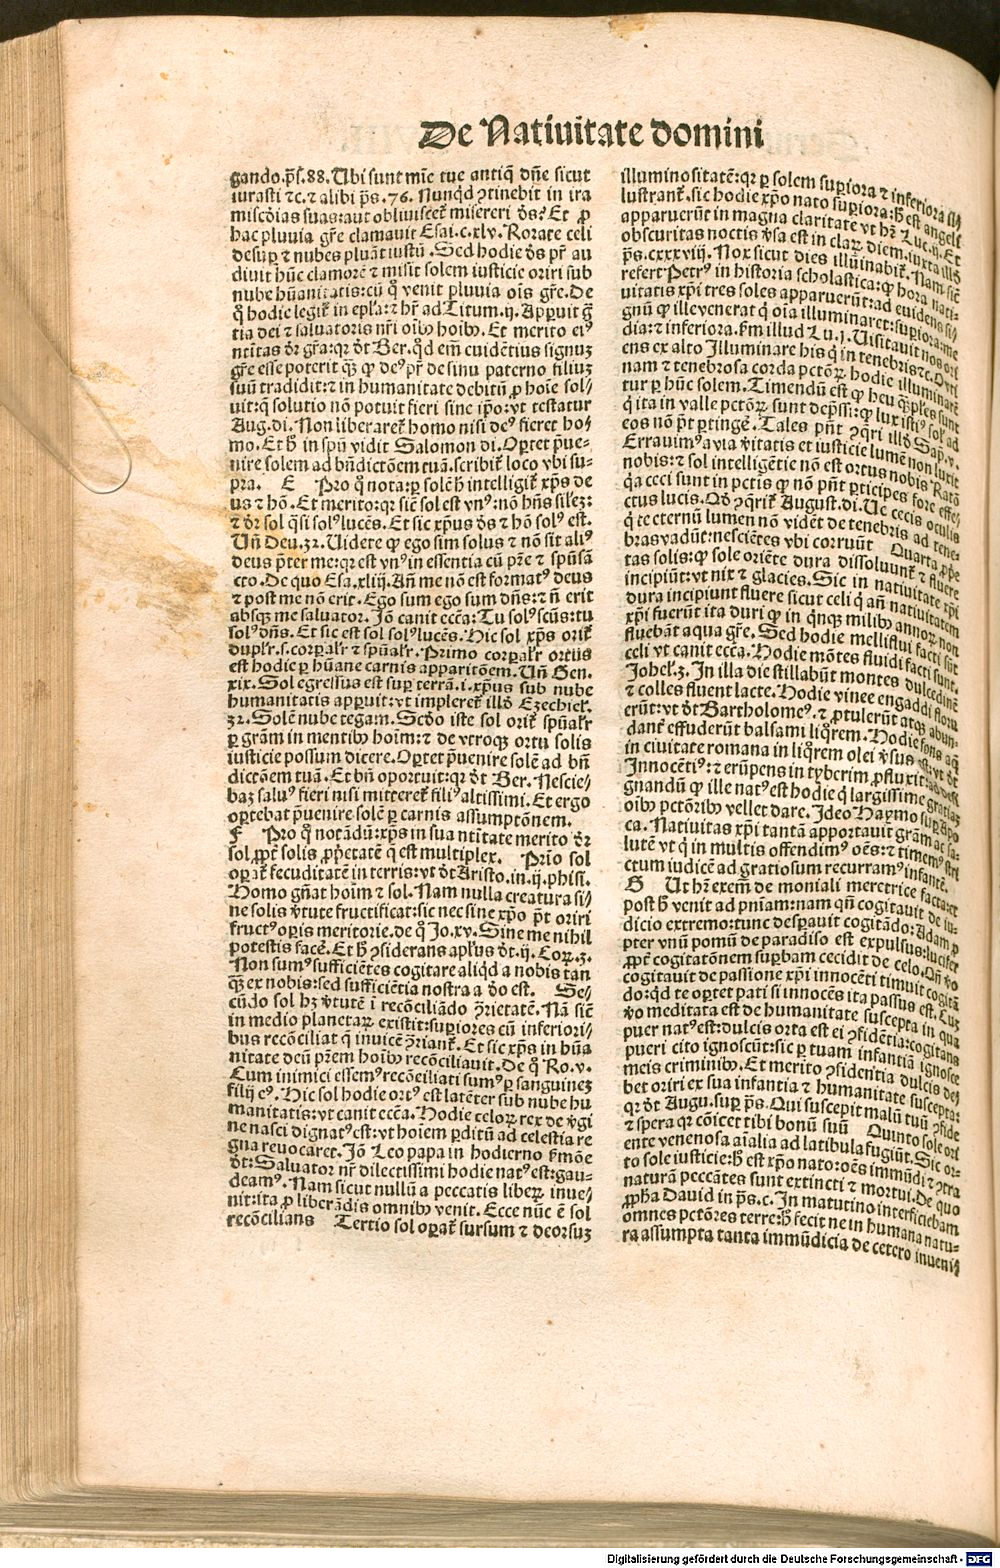 De Natiuitate domini
gando. p̄s. 88. Ubi sunt mīe tue antiq̄ dn̄e sicut
iurasti ⁊c. ⁊ alibi p̄s. 76. Nunqd̄ ꝯtinebit in ira
misc̄dias suas: aut obliuiscet᷑ misereri d̄s? Et ꝓ
hac pluuia gr̄e clamauit Esai. c. xlv. Rorate celi
desuꝑ ⁊ nubes pluāt iustū. Sed hodie d̄s pr̄ au
diuit hūc clamorē ⁊ misit solem iusticie oriri sub
nube hūanitatis: cū q̄ venit pluuia oīs gr̄e. De
q̄ hodie legit᷑ in epl̄a: ⁊ hr̄ ad Titum. ij. Apꝑuit gr̄
tia dei ⁊ saluatoris nr̄i oībꝰ hoībꝰ. Et merito eiꝰ
ntītas d̄r gr̄a: qꝛ d̄t Ber. qd̄ em̄ euidētius signuꝫ
gr̄e esse poterit q̄ꝫ ꝙ deꝰ pr̄ de sinu paterno filiuꝫ
suū tradidit: ⁊ in humanitate debitū ꝓ hoīe sol⸗
uit: q̄ solutio nō potuit fieri sine ip̄o: vt testatur
Aug. di. Non liberaret᷑ homo nisi deꝰ fieret ho⸗
mo. Et h̄ in spū vidit Salomon di. Oꝑtet p̄ue⸗
nire solem ad bn̄dictōem tuā. scribit᷑ loco vbi su⸗
pra. E Pro q̄ nota: ꝑ solē h̄ intelligit᷑ xp̄s de
us ⁊ hō. Et merito: qꝛ sic̄ sol est vnꝰ: nō hn̄s silеꝫ:
⁊ d̄r sol q̄si solꝰ lucēs. Et sic xp̄us d̄s ⁊ hō solꝰ est.
Un̄ Deu. 32. Uidete ꝙ ego sim solus ⁊ nō sit aliꝰ
deus p̄ter me: qꝛ est vnꝰ in essentia cū pr̄e ⁊ spū sā
cto. De quo Esa. xliij. An̄ me nō est formatꝰ deus
⁊ post me nō erit. Ego sum ego sum dn̄s: ⁊ n̄ erit
absqꝫ me saluator. Jō canit ecc̄a: Tu solꝰ sc̄us: tu
solꝰ dn̄s. Et sic est sol solꝰ lucēs. Hic sol xp̄s orit᷑
duplr̄. s. corꝑalr̄ ⁊ spūalr̄. Primo corꝑalr̄ ortus
est hodie ꝑ hūane carnis apparitōem. Un̄ Gen.
xix. Sol egressus est suꝑ terrā. i. xp̄us sub nube
humanitatis apꝑuit: vt impleret᷑ illd̄ Ezechiel᷑.
32. Solē nube tegam. Scd̄o iste sol orit᷑ spūalr̄
ꝑ gr̄am in mentibꝰ hoīm: ⁊ de vtroqꝫ ortu solis
iusticie possum dicere. Oꝑtet p̄uenire solē ad bn̄
dictōem tuā. Et bn̄ oportuit: qꝛ d̄t Ber. Nescie⸗
baꝫ saluꝰ fieri nisi mitteret᷑ filiꝰ altissimi. Et ergo
oꝑtebat p̄uenire solē ꝑ carnis assumptōnem.
F Pro q̄ notādū: xp̄s in sua ntītate merito d̄r
sol ꝓpt̄ solis ꝓp̄etatē q̄ est multiplex. Prīo sol
oꝑat᷑ fecunditatē in terris: vt d̄t Aristo. in. ij. phisi.
Homo gn̄at hoīm ⁊ sol. Nam nulla creatura si⸗
ne solis v̄tute fructificat: sic nec sine xp̄o p̄t oriri
fructꝰ oꝑis meritorie. de q̄ Jo. xv. Sine me nihil
potestis facē. Et h̄ ꝯsiderans apl̄us d̄t. ij. Coꝝ. 3.
Non sumꝰ sufficiētes cogitare aliqd̄ a nobis tan
q̄ꝫ ex nobis: sed sufficiētia nostra a d̄o est. Se⸗
cūdo sol hꝫ v̄tutē ī recōciliādo ꝯ̄rietatē. Nā sic̄
in medio planetaꝝ existit: suꝑiores cū inferiori⸗
bus recōciliat q̄ inuicē ꝯ̄riant᷑. Et sic xp̄s in hūa
nitate deū pr̄em hoībꝰ recōciliauit. De q̄ Ro. v.
Cum inimici essemꝰ recōciliati sumꝰ ꝑ sanguineꝫ
filij eꝰ. Hic sol hodie ortꝰ est latēter sub nube hu
manitatis: vt canit ecc̄a. Hodie celoꝝ rex de v̄gi
ne nasci dignatꝰ est: vt hoīem ꝑditū ad celestia re
gna reuocaret. Jō Leo papa in hodierno ẜmōe
d̄t: Saluator nr̄ dilectissimi hodie natꝰ est: gau⸗
deamꝰ. Nam sicut nullū a peccatis libeꝝ inue⸗
nit: ita ꝓ liberādis omnibꝰ venit. Ecce nūc ē sol
recōcilians Tertio sol oꝑat᷑ sursum ⁊ deorsuꝫ
illuminositatē: qꝛ ꝑ solem suꝑiora ⁊ inferiora il⸗
lustrant᷑. sic hodie xp̄o nato suꝑiora: h̄ est angeli
apparuerūt in magna claritate vt hr̄ Luc. ij. Et
obscuritas noctis v̄sa est in claꝝ diem. iuxta illd̄
p̄s. cxxxviij. Nox sicut dies illuīnabit᷑. Nam sic̄
refert Petrꝰ in historia scholastica: ꝙ hora nati⸗
uitatis xp̄i tres soles apparuerūt: ad euidens si⸗
gnū ꝙ ille venerat q̄ oīa illuminaret: suꝑiora: me
dia: ⁊ inferiora. ẜm illud Lu. j. Uisitauit nos ori
ens ex alto Illuminare his q̄ in tenebris ⁊c. Orti
nam ⁊ tenebrosa corda pctōꝝ hodie illuminare
tur ꝑ hūc solem. Timendū est ꝙ heu q̄ꝫples sunt
q̄ ita in valle pctōꝝ sunt dep̄ssi: ꝙ lux istiꝰ sol ad
eos nō p̄t ꝑtingē. Tales pn̄t ꝯq̄ri illd̄ Sap. v.
Errauimꝰ a via v̄itatis et iusticie lumē non luxit
nobis: ⁊ sol intelligētie nō est ortus nobis Ratō
q̄a ceci sunt in pctīs ꝙ nō pn̄t ꝑticipes fore effe⸗
ctus lucis. Qd̄ ꝯq̄rit᷑ August. di. Ue cecis oculis
q̄ te eternū lumen nō vidēt de tenebris ad tene⸗
bras vadūt: nesciētes vbi corruūt Quarta ꝓp̄e
tas solis: ꝙ sole oriēte dura dissoluunt᷑ ⁊ fluere
incipiūt: vt nix ⁊ glacies. Sic in natiuitate xp̄i
dura incipiunt fluere sicut celi q̄ an̄ natiuitatem
xp̄i fuerūt ita duri ꝙ in q̄nqꝫ milibꝰ annoꝝ non
fluebāt aqua gr̄e. Sed hodie melliflui facti sūt
celi vt canit ecc̄a. Hodie mōtes fluidi facti sunt.
Johel. 3. In illa die stillabūt montes dulcedinē
⁊ colles fluent lacte. Hodie vinee engaddi floru
erūt: vt d̄t Bartholomeꝰ. ⁊ ꝓtulerūt atqꝫ abun⸗
dant᷑ effuderūt balsami liq̄rem. Hodie fons aq̄
in ciuitate romana in liq̄rem olei v̄sus est: vt d̄t
Innocētiꝰ: ⁊ erūpens in tyberim ꝓfluxit: ad desi
gnandū ꝙ ille natꝰ est hodie q̄ largissime gratiaꝫ
oībꝰ pctōribꝰ vellet dare. Ideo Haymo suꝑ apo
ca. Natiuitas xp̄i tantā apportauit gr̄am ac sa⸗
lutē vt q̄ in multis offendimꝰ oēs: ⁊ timemꝰ stri
ctum iudicē ad gratiosum recurramꝰ infantē.
G Ut hr̄ exem̄ de moniali meretrice facta: et
post h̄ venit ad pn̄iam: nam qn̄ cogitauit de iu⸗
dicio extremo: tunc desꝑauit cogitādo: Adam ꝓ
pter vnū pomū de paradiso est expulsus: lucifer
ꝓpt̄ cogitatōnem suꝑbam cecidit de celo. Qn̄ vo
cogitauit de passione xp̄i innocēti timuit cogitā
do: qd̄ te oꝑtet pati si innocēs ita passus est. Cuꝫ
vo meditata est de humanitate suscepta in qua
puer natꝰ est: dulcis orta est ei ꝯfidētia: cogitans
pueri cito ignoscūt: sic ꝑ tuam infantiā ignosce
meis criminibꝰ. Et merito ꝯfidentia dulcis de⸗
bet oriri ex sua infantia ⁊ humanitate suscepta:
qꝛ d̄t Augu. suꝑ p̄s. Qui suscepit malū tuū ꝯfide
⁊ spera qꝛ cōicet tibi bonū suū Quinto sole ori
ente venenosa aīalia ad latibula fugiūt. Sic or⸗
to sole iusticie: h̄ est xp̄o nato: oēs immūdi ⁊ ꝯtra
naturā peccātes sunt extincti ⁊ mortui. De quo
ꝓpha Dauid in p̄s. c. In matutino interficiebam
omnes pctōres terre: h̄ fecit ne in humana natu⸗
ra assumpta tanta immūdicia de cetero inueni⸗
Digitalisierung gefördert durch die Deutsche Forschungsgemeinschaft - DFG